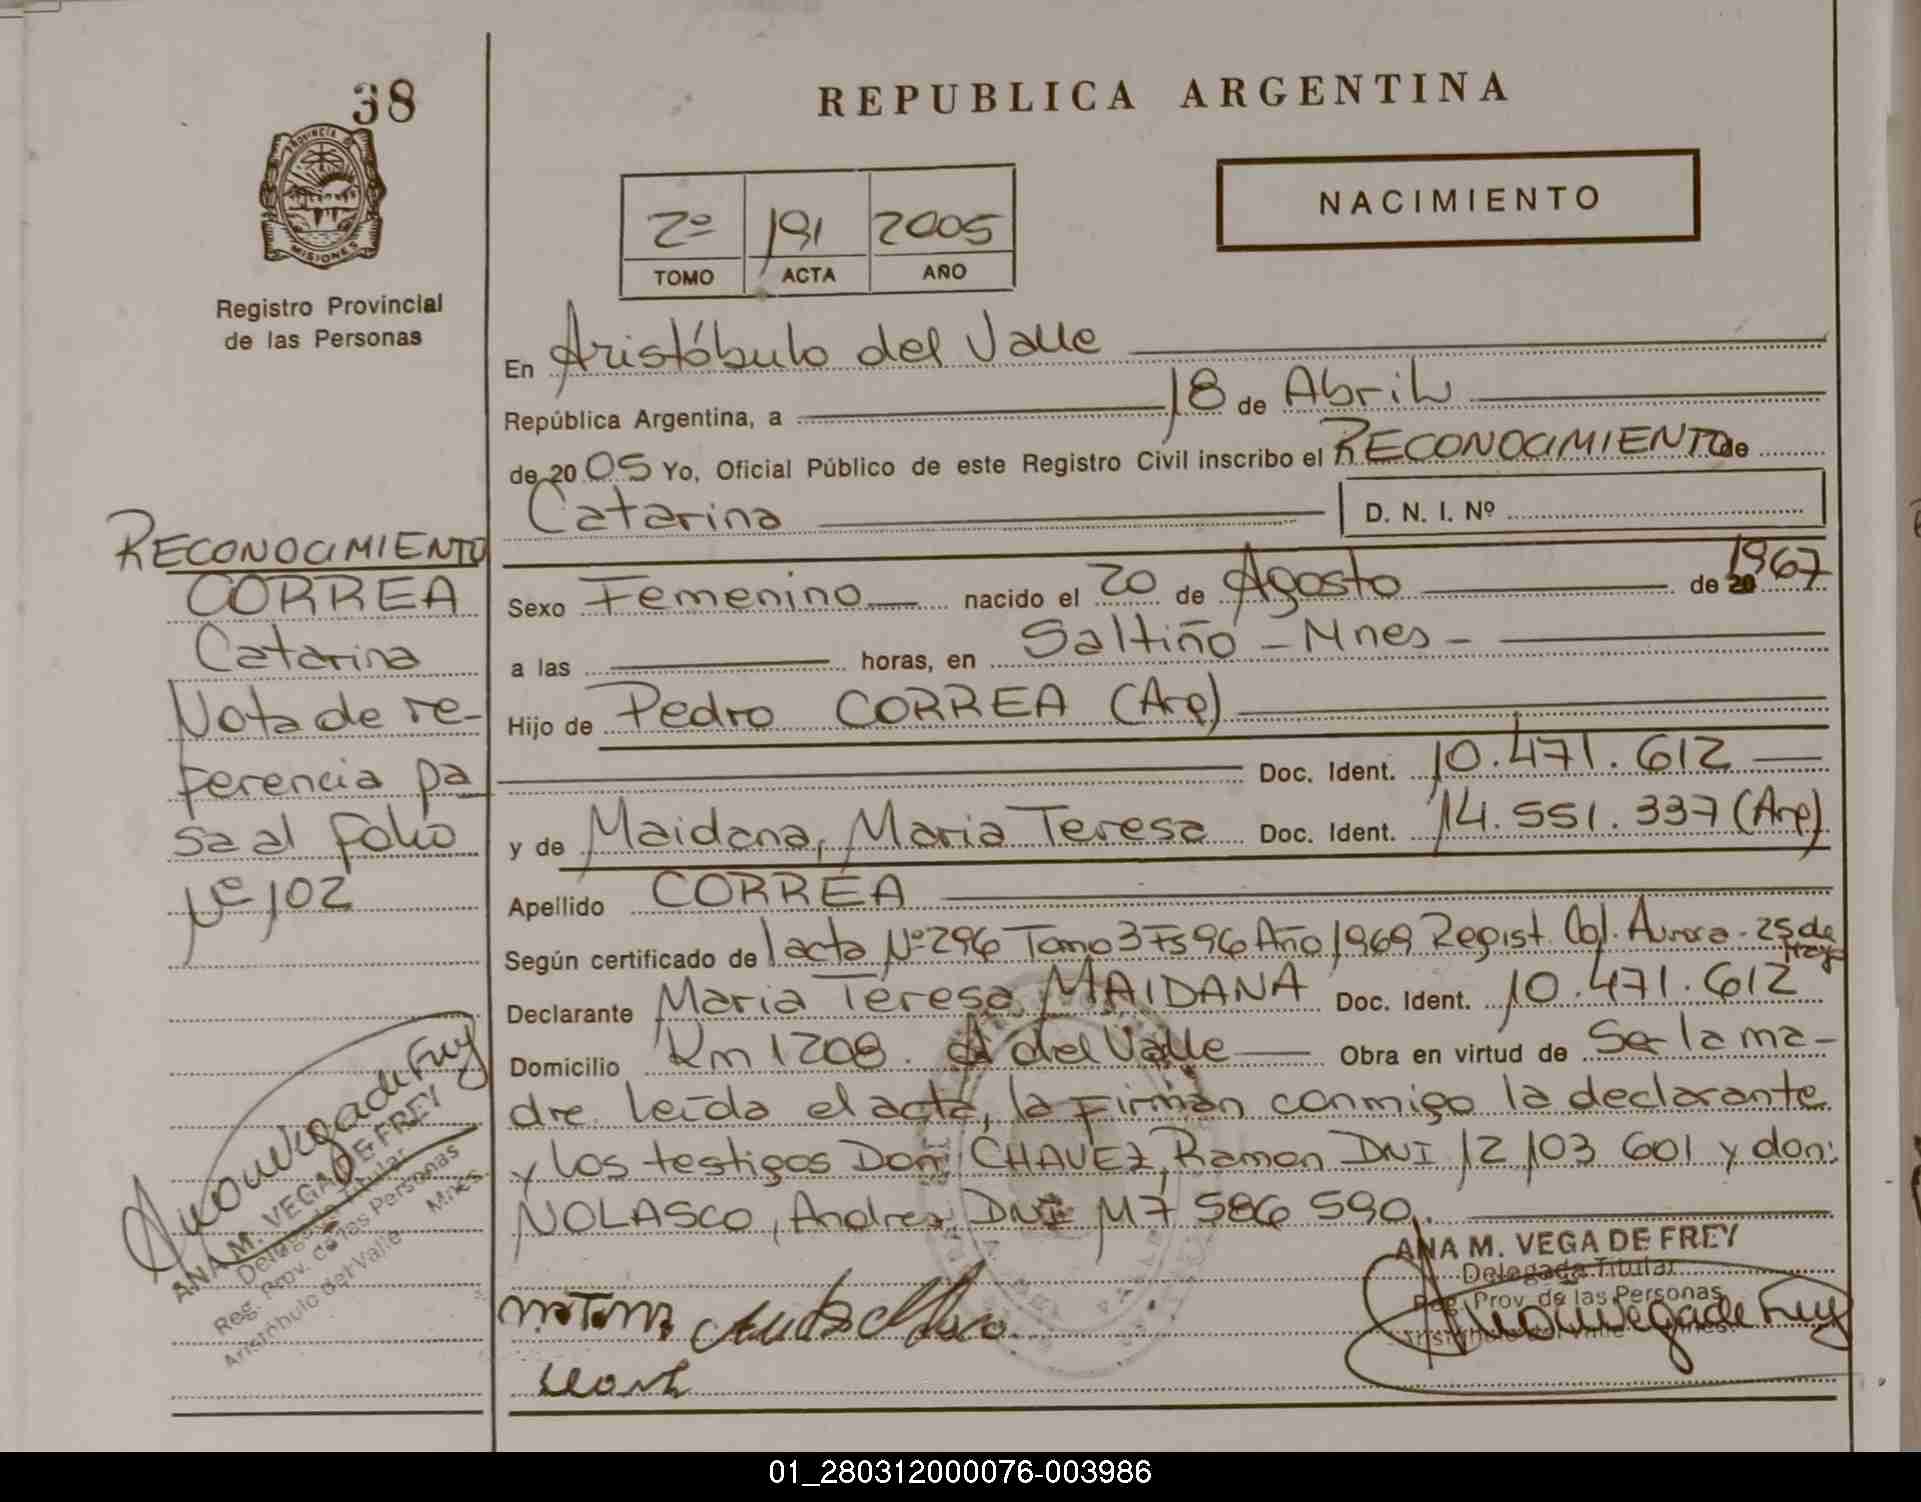 38
PROVINCIA
MISIONES
Registro Provincial
de las Personas
REPUBLICA ARGENTINA
NACIMIENTO
2º 191 2005
TOMO ACTA AÑO
En Aristóbulo del Valle
República Argentina, a 18 de Abril
de 2005 Yo, Oficial Público de este Registro Civil inscribo el RECONOCIMIENTO de
Catarina D. N. I. Nº
Sexo Femenino nacido el 20 de Agosto de 20 1967
a las horas, en Saltiño - Mnes -
Hijo de Pedro CORREA (Arg)
Doc. Ident. 10.471.612
y de Maidana, Maria Teresa Doc. Ident. 14.551.337 (Arg)
Apellido CORREA
Según certificado de 1 acta Nº 296 Tomo 3 Fs 96 Año 1969 Regist. Col. Aurora - 25 de Mayo
Declarante Maria Teresa MAIDANA Doc. Ident. 10.471.612
Domicilio Km 1208. A del Valle Obra en virtud de Se la ma-
dre. Leída el acta, la firman conmigo la declarante
y los testigos Don: CHAVEZ, Ramon DNI 12 103 601 y don:
NOLASCO, Andres DNI M7 586 590.
ANA M. VEGA DE FREY
Delegada Titular
Reg. Prov. de las Personas
RECONOCIMIENTO
CORREA
Catarina
Nota de re-
ferencia pa
sa al folio
Nº 102
ANA M. VEGA DE FREY
Delegada Titular
Reg. Prov. de las Personas
Aristóbulo del Valle Mnes.
01_280312000076-003986